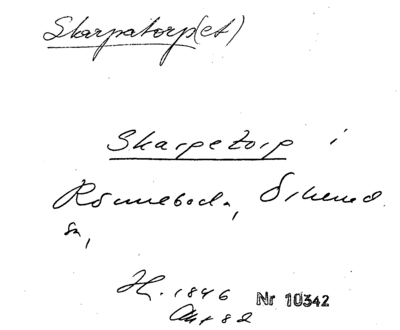 Skarpatorp(et)
Skarpetorp i
Rönneboda, Örkened
sn,
H. 1846 Nr 10342